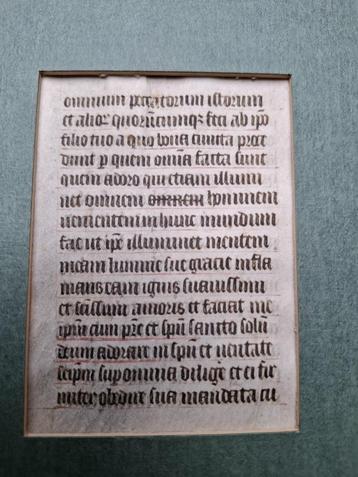 omnium peccatorum istorum
et alior quorūcumqz feci ab ipo
filio tuo a quo bona cuncta proce
dunt p quem omīa facta sunt
quem adoro qui etiam illumi
net omnem omnem hominem
uenientem in hunc mundum
fac ut ipe illuminet mentem
meam lumine sue gracie infla
mans eam ignis suauissimi
et sāssimi amoris et faciat me
ipm cum pre et spū sancto solū
deum adorare in spū et ueritate
seipm sup omnia diligere et ei fir
miter obedire sua mandata cu